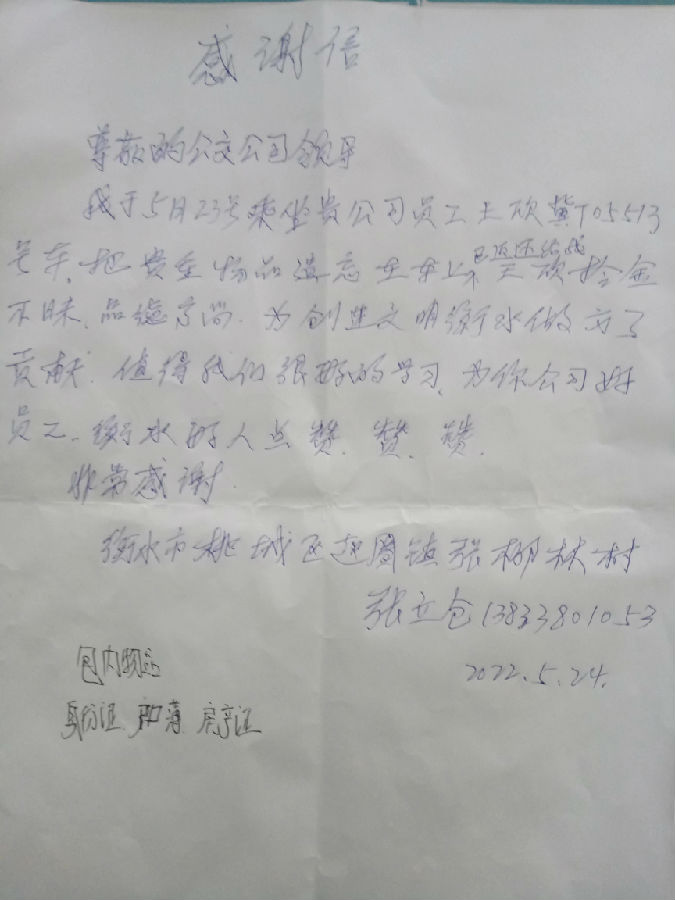 感谢信
尊敬的公交公司领导
我于5月23号乘坐贵公司员工王欣冀T05513
号车,把贵重物品遗忘在车上,已返还给我 王欣拾金
不昧,品德高尚.为创建文明衡水做出了
贡献.值得我们很好的学习,为你公司好
员工.衡水好人点赞.赞.赞.
非常感谢.
衡水市桃城区赵圈镇张柳林村
张立仓13833801053
2022.5.24.
包内物品
身份证 户口薄 房产证